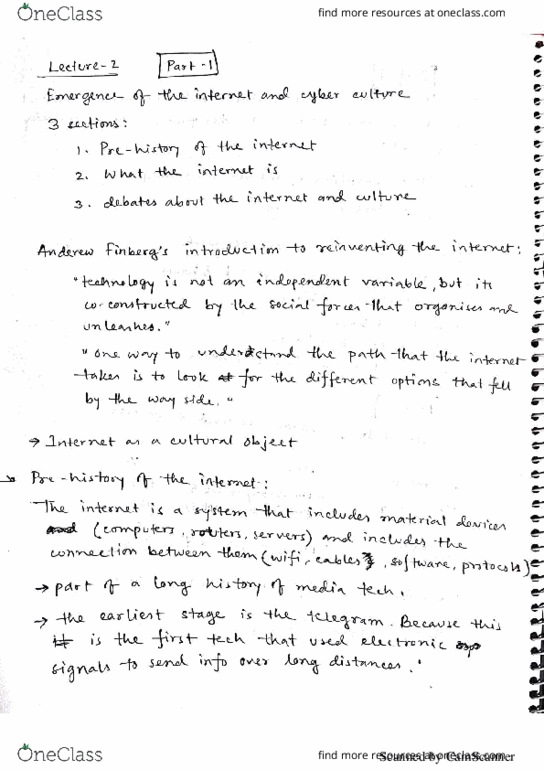 OneClass
find more resources at oneclass.com
Lecture-2 Part-1
Emergence of the internet and cyber culture
3 sections:
1. Pre-history of the internet
2. What the internet is
3. debates about the internet and culture
Anderew Finberg's introduction to reinventing the internet:
"technology is not an independent variable, but its
co-constructed by the social forces that organises and
unleashes."
"one way to understand the path that the internet
takes is to look for the different options that fell
by the way side."
→ Internet as a cultural object
→ Pre-history of the internet:
The internet is a system that includes material devices
(computers, routers, servers) and includes the
connection between them (wifi, cables, software, protocols)
→ part of a long history of media tech.
→ the earliest stage is the telegram. Because this
is the first tech that used electronic
signals to send info over long distances."
OneClass
find more resources at oneclass.com
Scanned by CamScanner